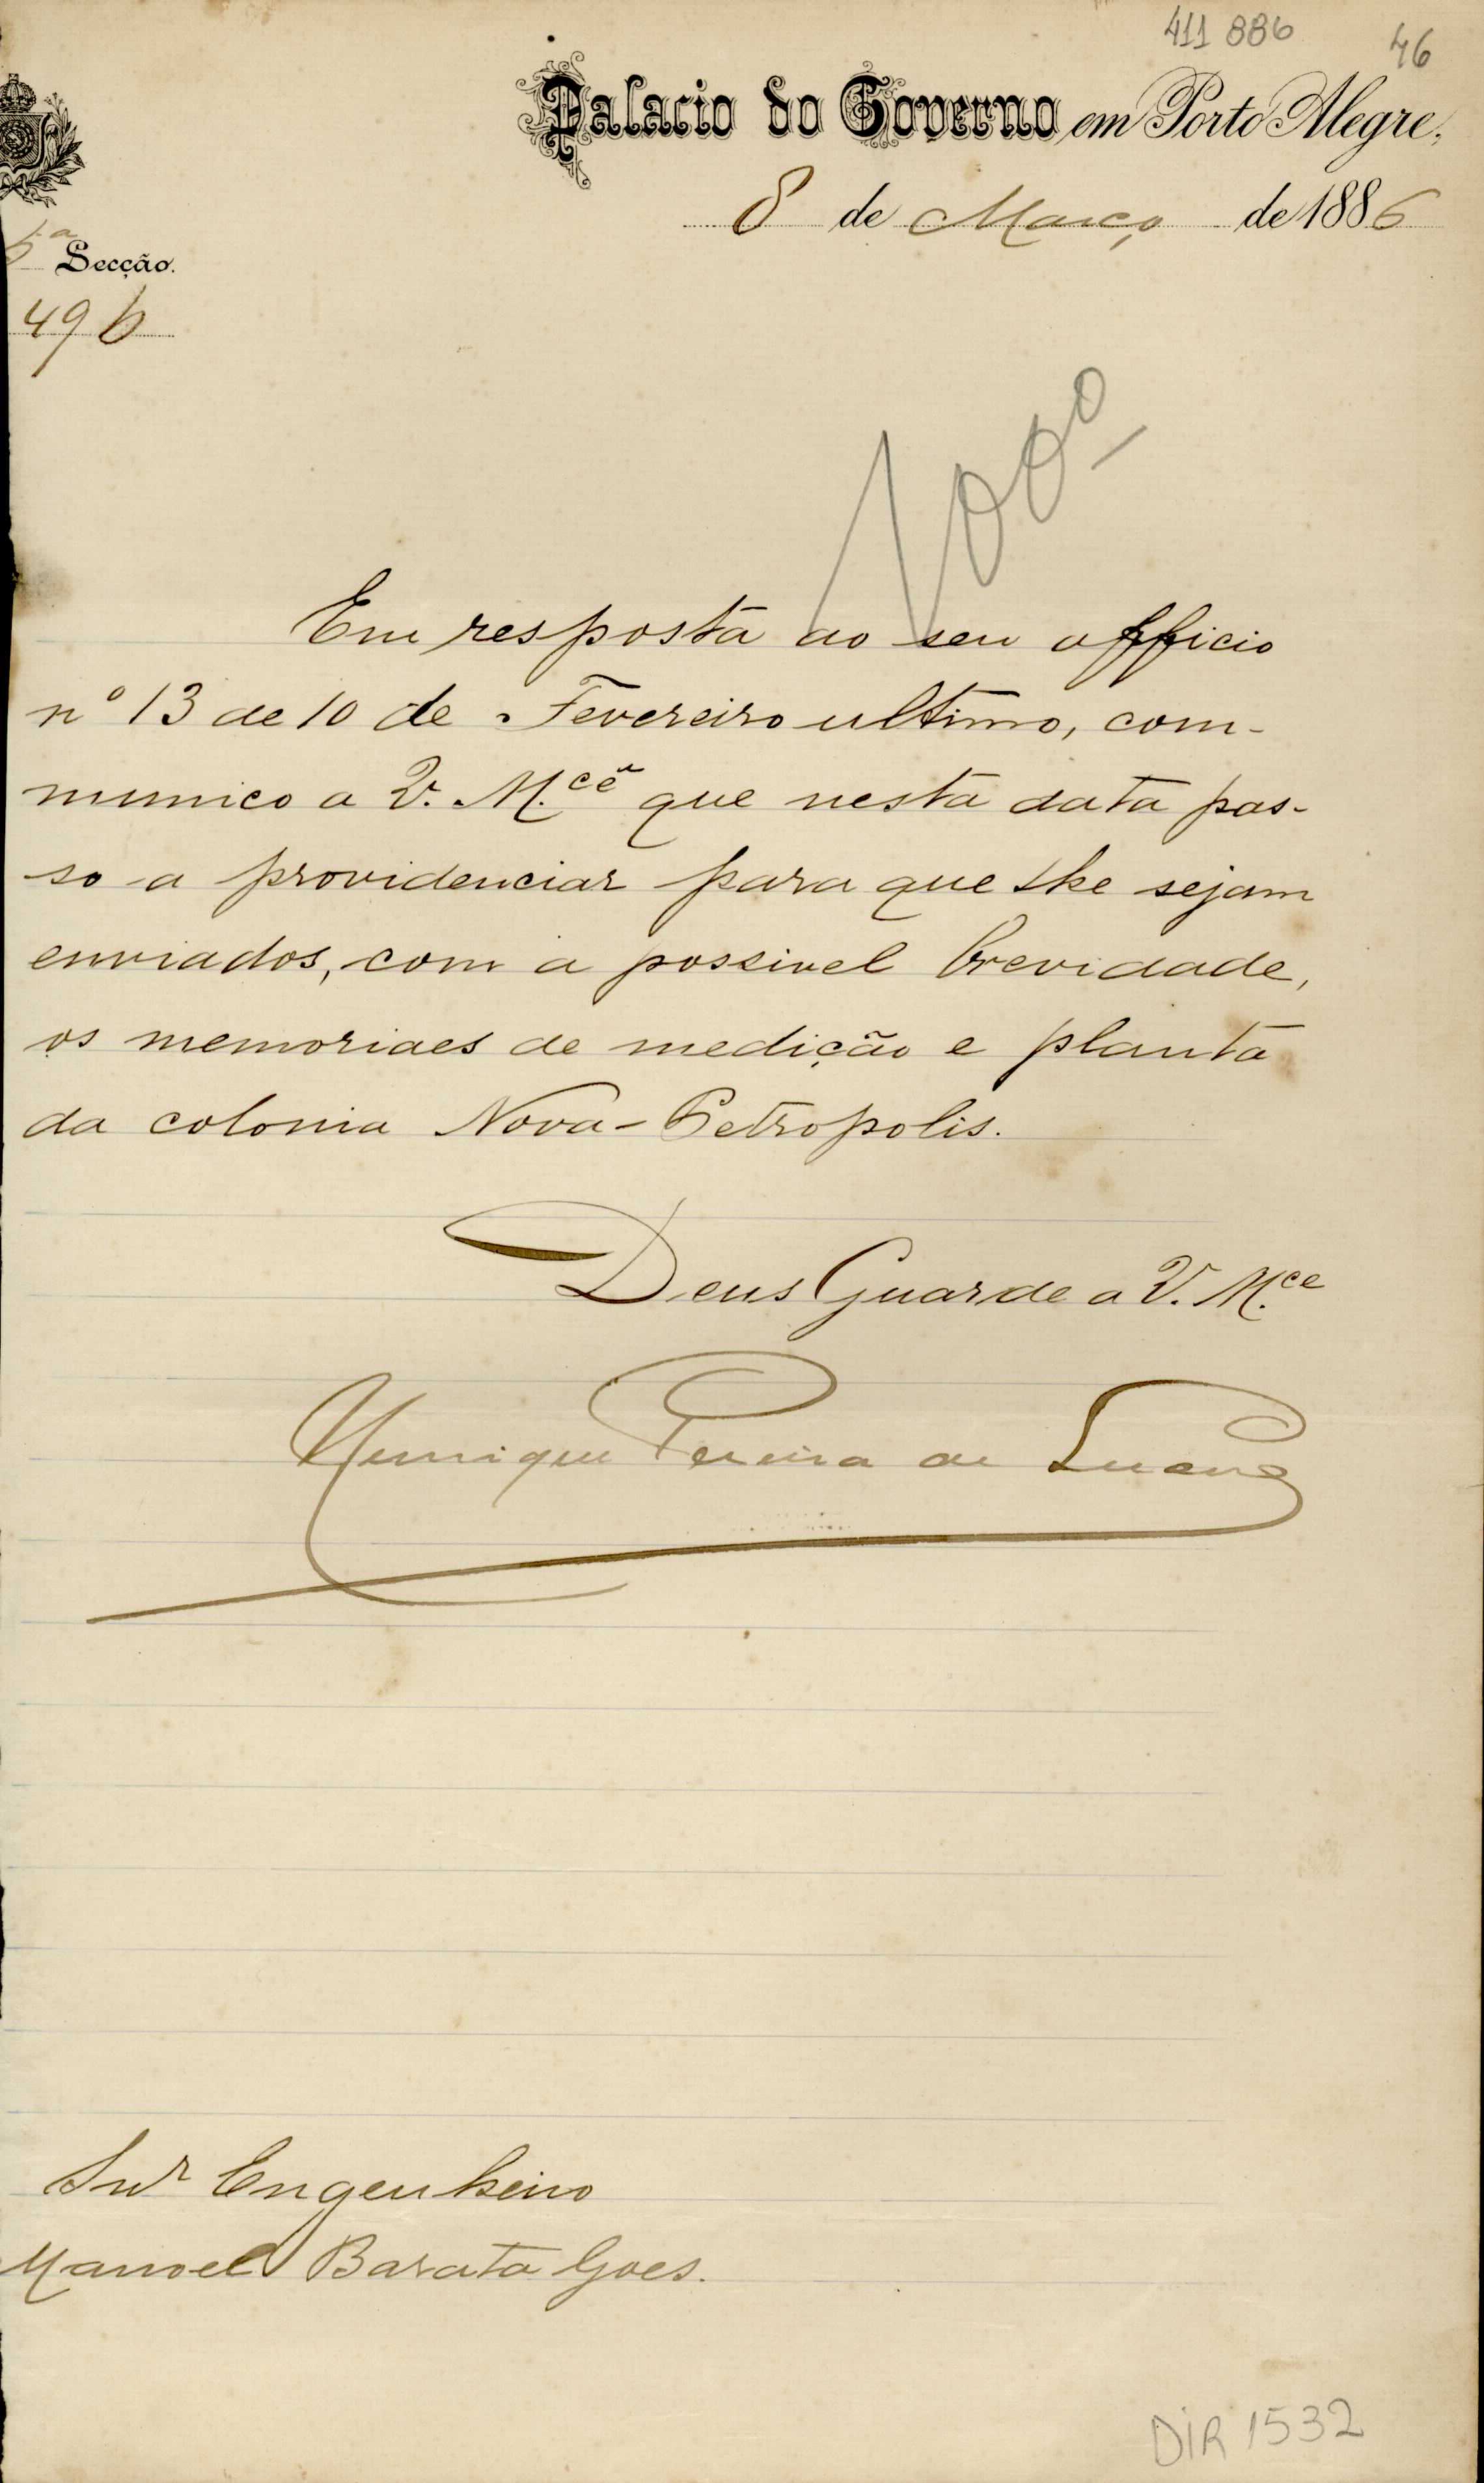 411 886
46
Palacio do Governo em Porto Alegre,
8 de Março de 1886
Secção.
496
Em resposta ao seu officio
nº 13 de 10 de Fevereiro ultimo, com-
munico a V. M.ce que nesta data pas-
so a providenciar para que lhe sejam
enviados, com a possivel brevidade,
os memoriaes de medição e planta
da colonia Nova-Petropolis.
Deus Guarde a V. M.ce
Henrique Pereira de Lucena
Snr Engenheiro
Manoel Barata Goes.
DIR 1532